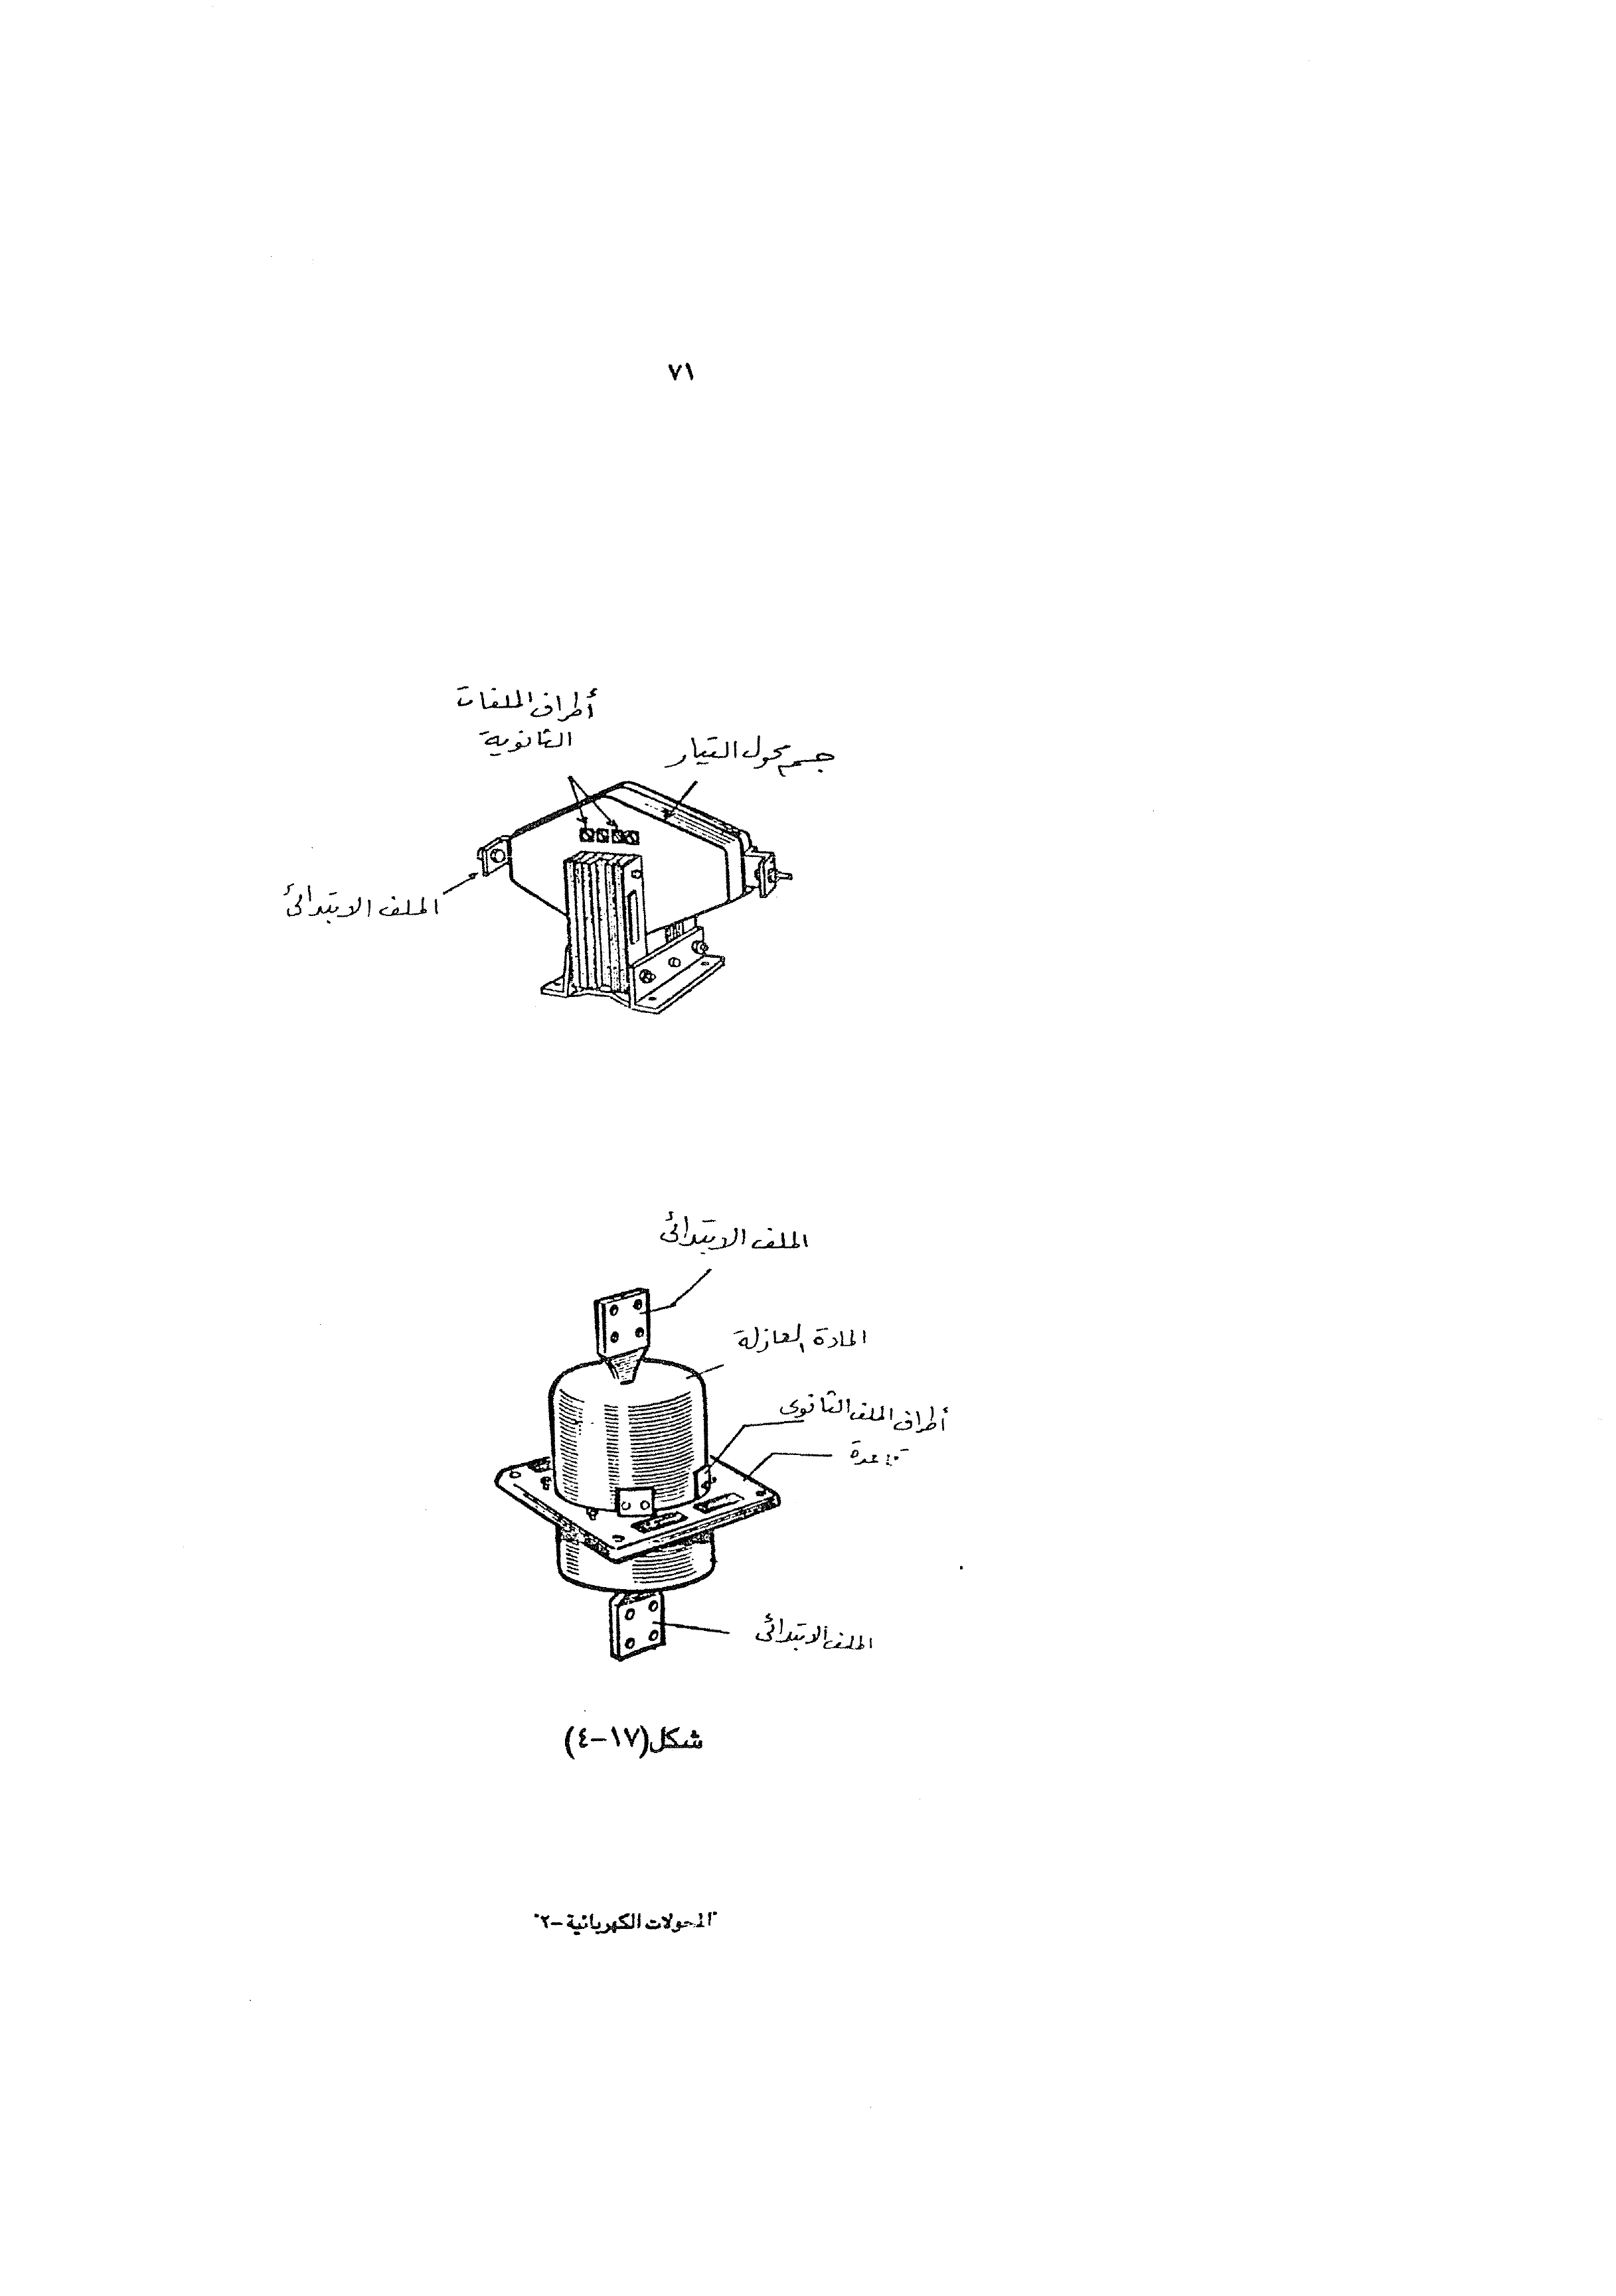 ٧١
أطراف الملفات
الثانوية
جسم محول التيار
الملف الابتدائى
الملف الابتدائى
المادة العازلة
أطراف الملف الثانوى
قاعدة
الملف الابتدائى
شكل(١٧-٤)
"المحولات الكهربائية-٢"